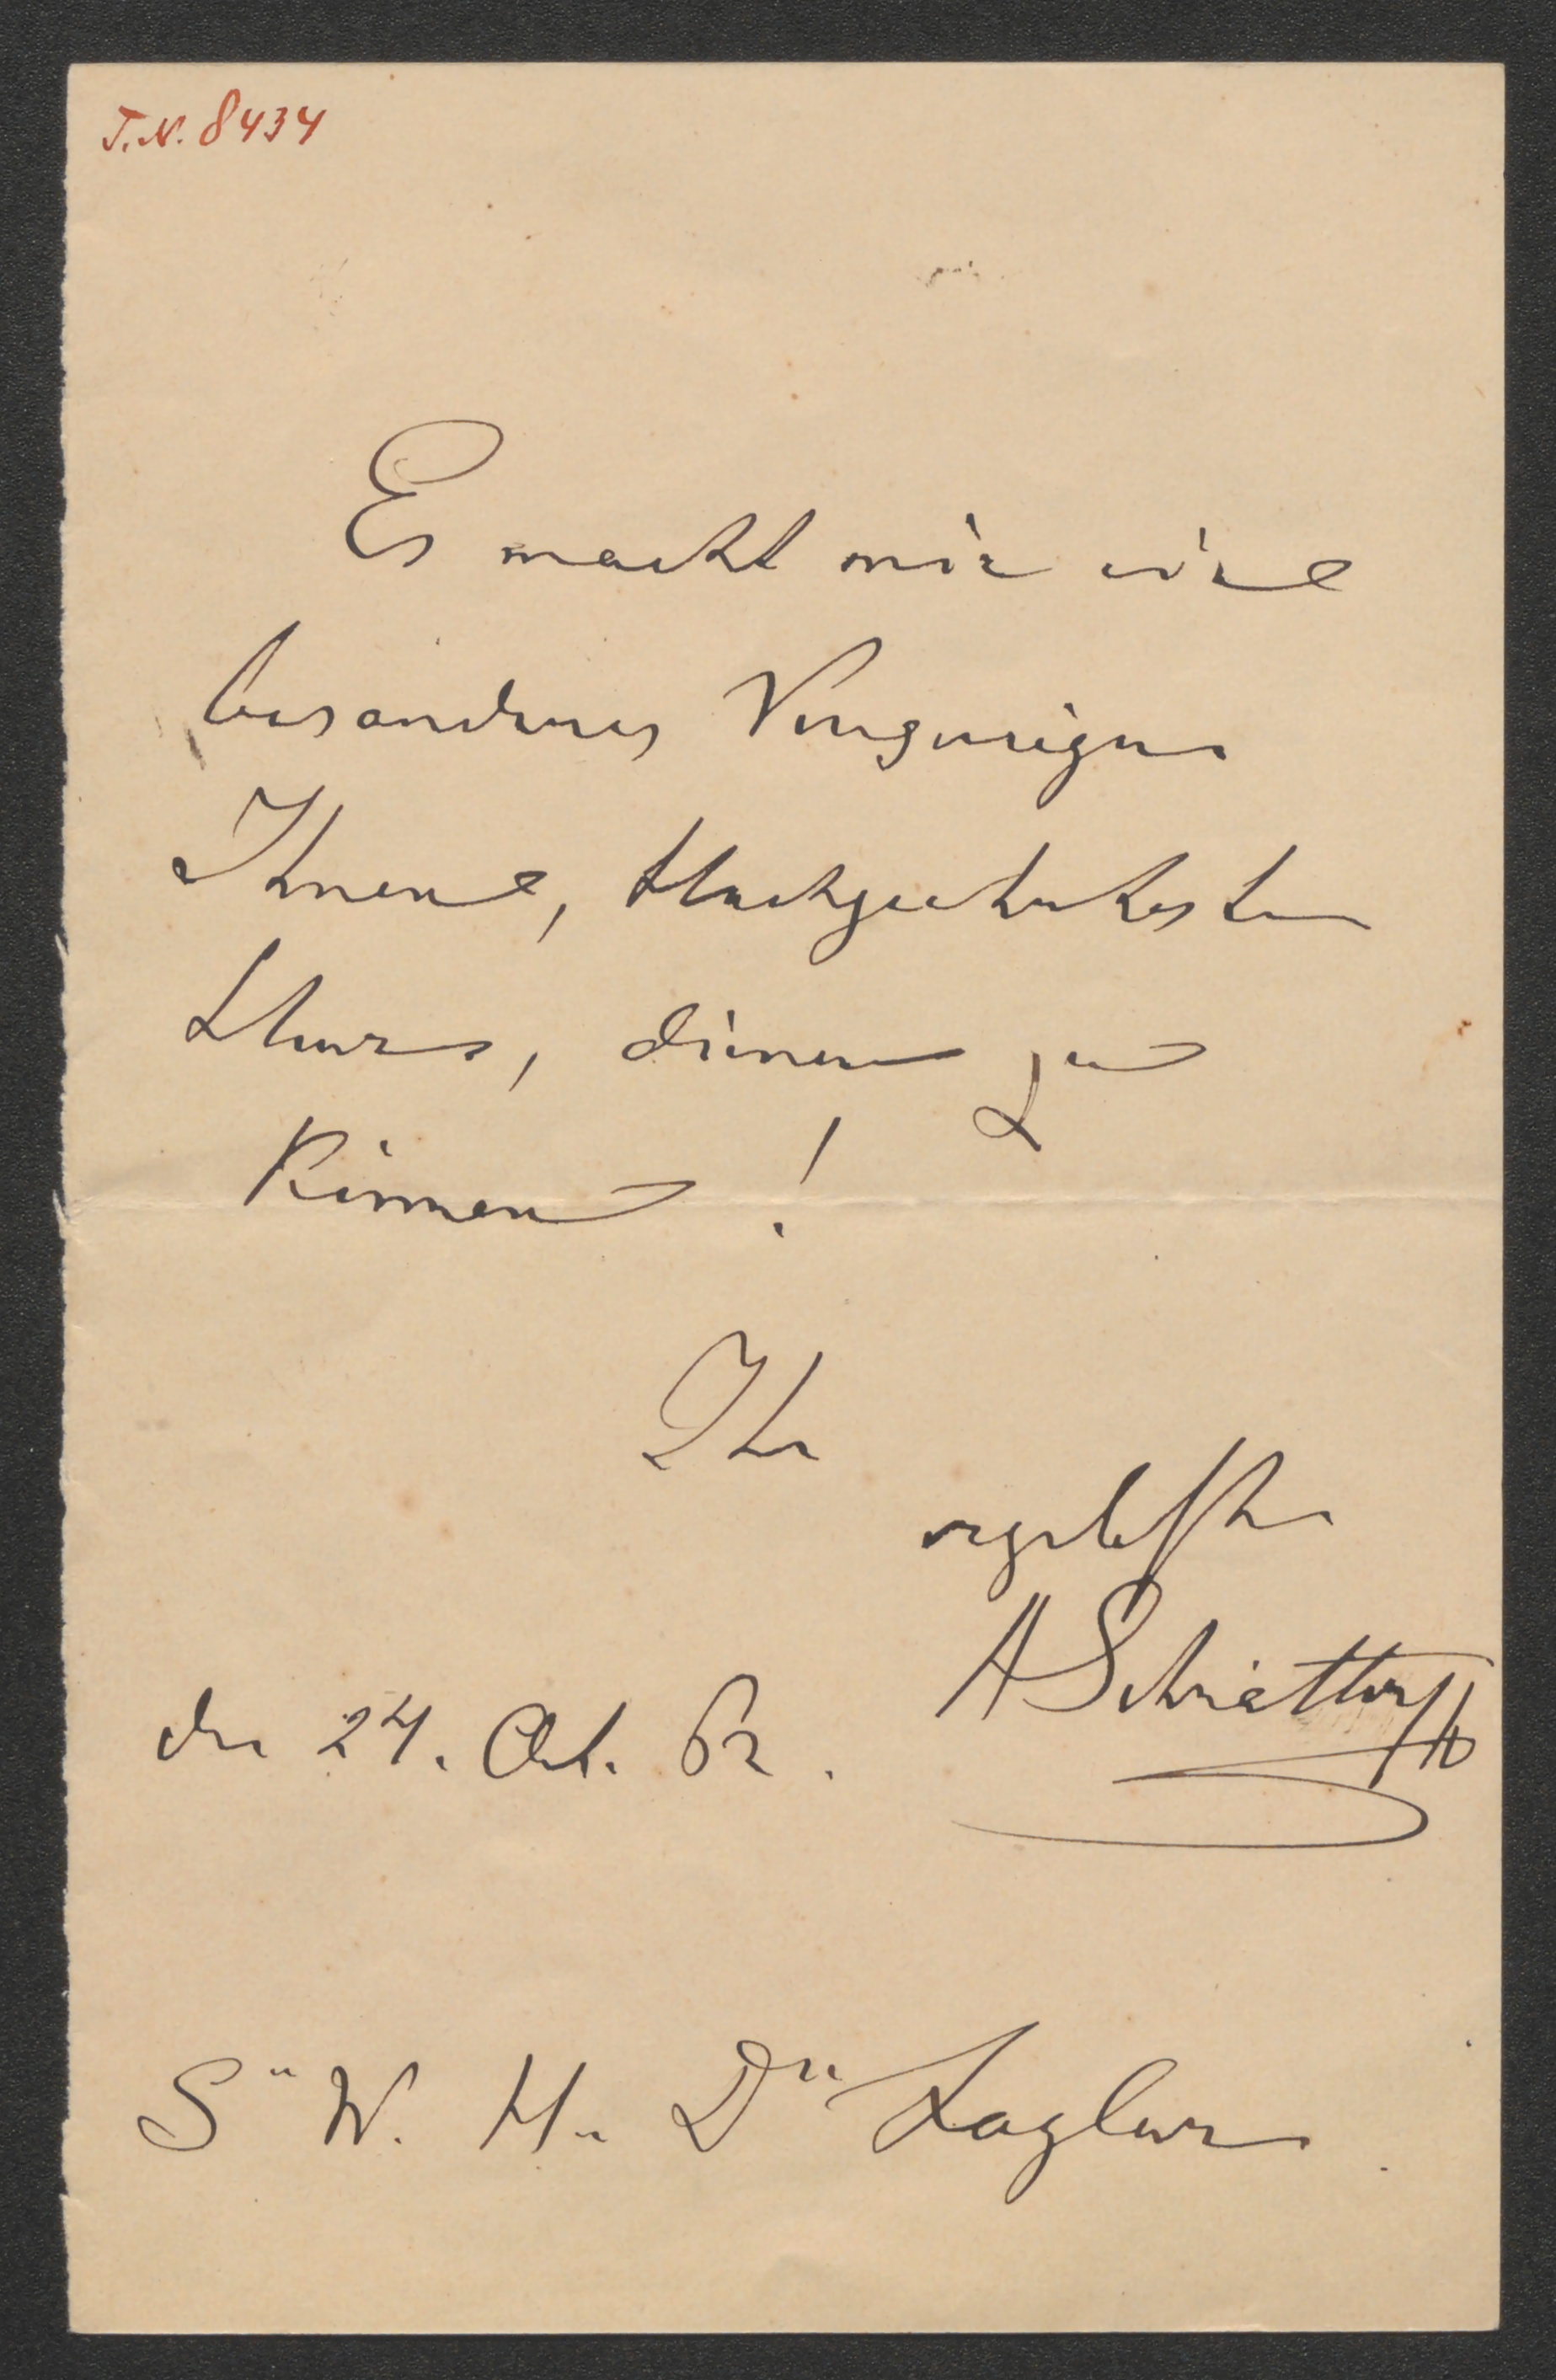 J.N. 8434
Es macht mir ein
besonderes Vergnügen
Ihnen, Hochgeehrtester
Herr, dienen zu
können!
Ihr
ergebenster
A Schrötter
den 24. Oct. 62.
Sr W. H. Dr